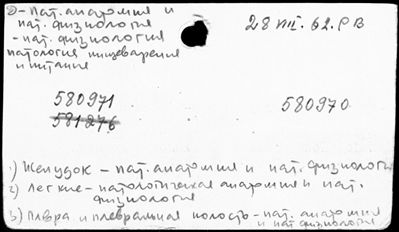 ②-Пат. анатомия и
пат. физиология
-пат. физиология
патология пищеварения
и питания
28 VIII. 62. Р В
580971
580970
581276
1) Желудок - пат. анатомия и пат. физиологи
2) Легкие - патологическая анатомия и пат.
физиология
3) Плевра и плевральная полость - пат. анатомия
и пат физиология